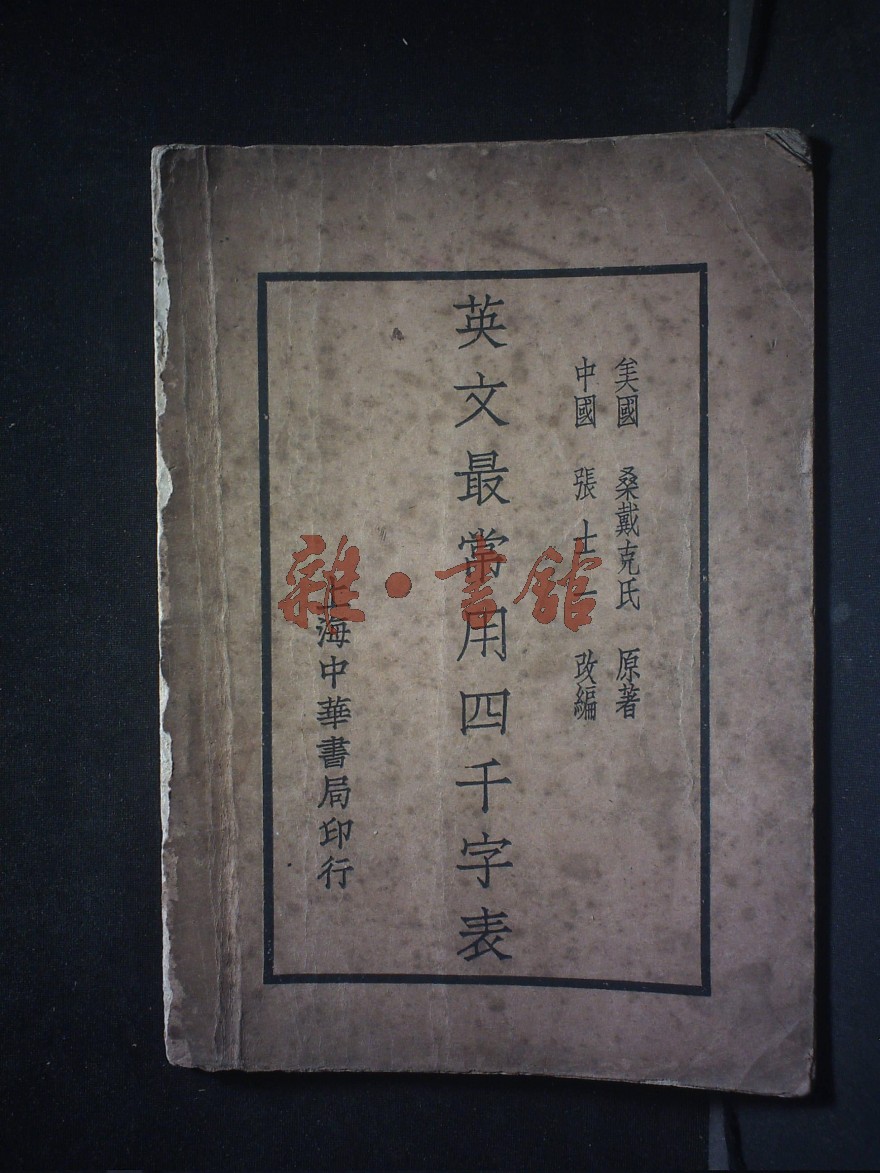 美國 桑戴克氏 原著
中國 張士一 改編
英文最常用四千字表
上海中華書局印行
雜·書館